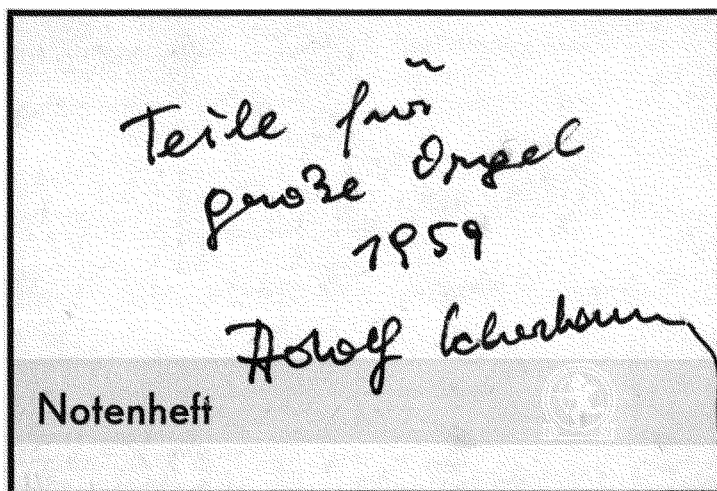 Teile für
große Orgel
1959
Adolf Scherbaum
Notenheft